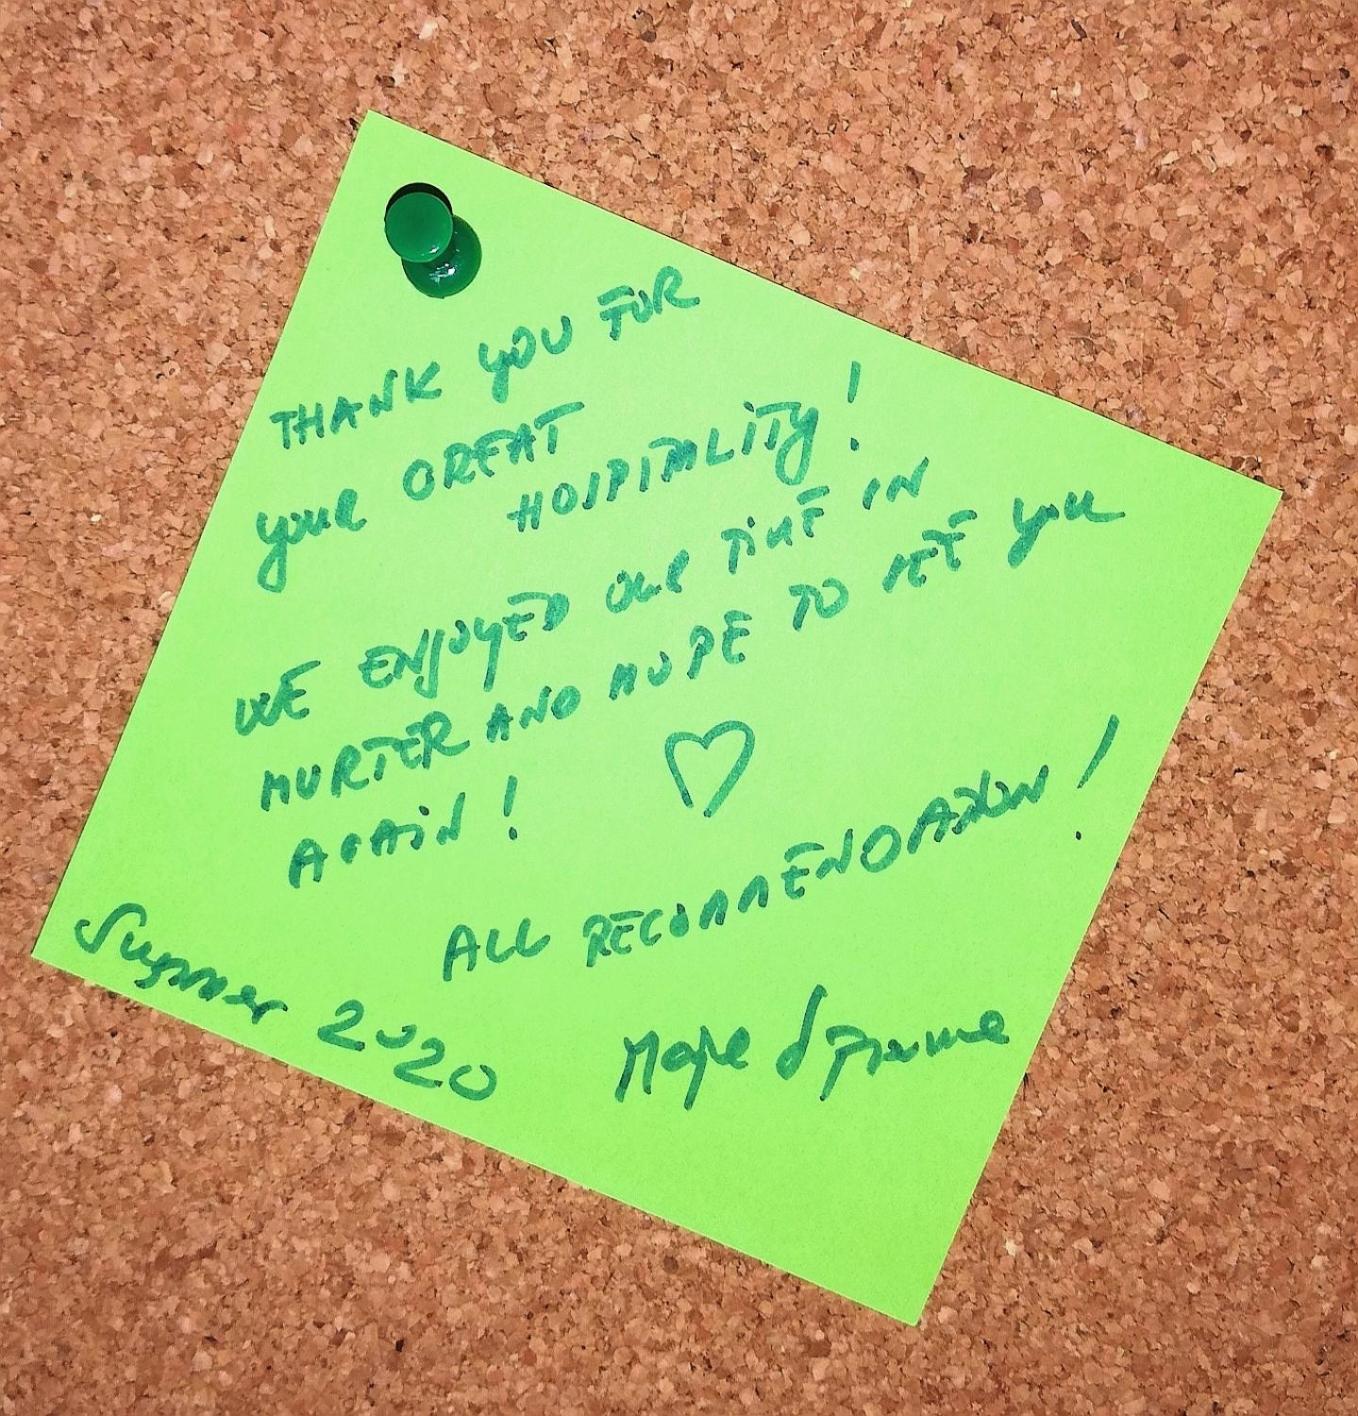 THANK YOU FOR
YOUR GREAT
HOSPITALITY!
WE ENJOYED OUR TIME IN
MURTER AND HOPE TO SEE YOU
AGAIN!
ALL RECOMMENDATION!
Summer 2020